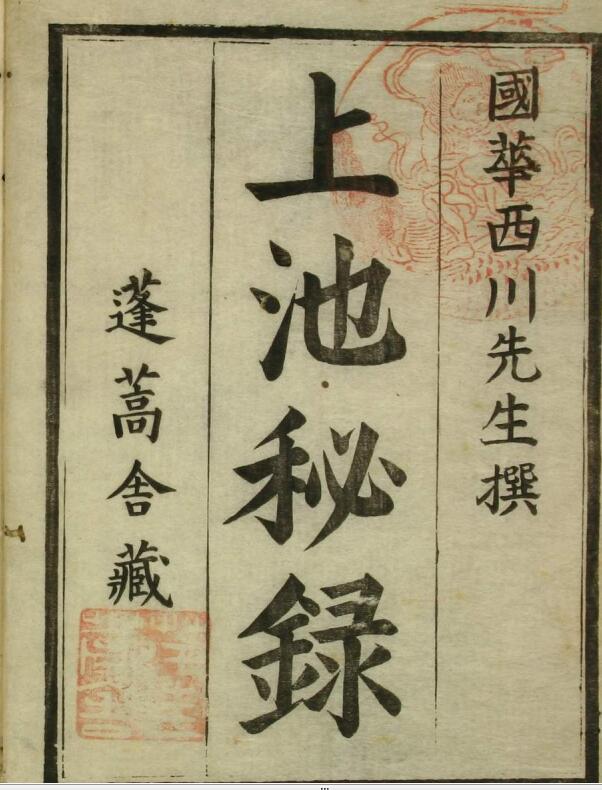 國華西川先生撰
上池秘録
蓬蒿舎藏